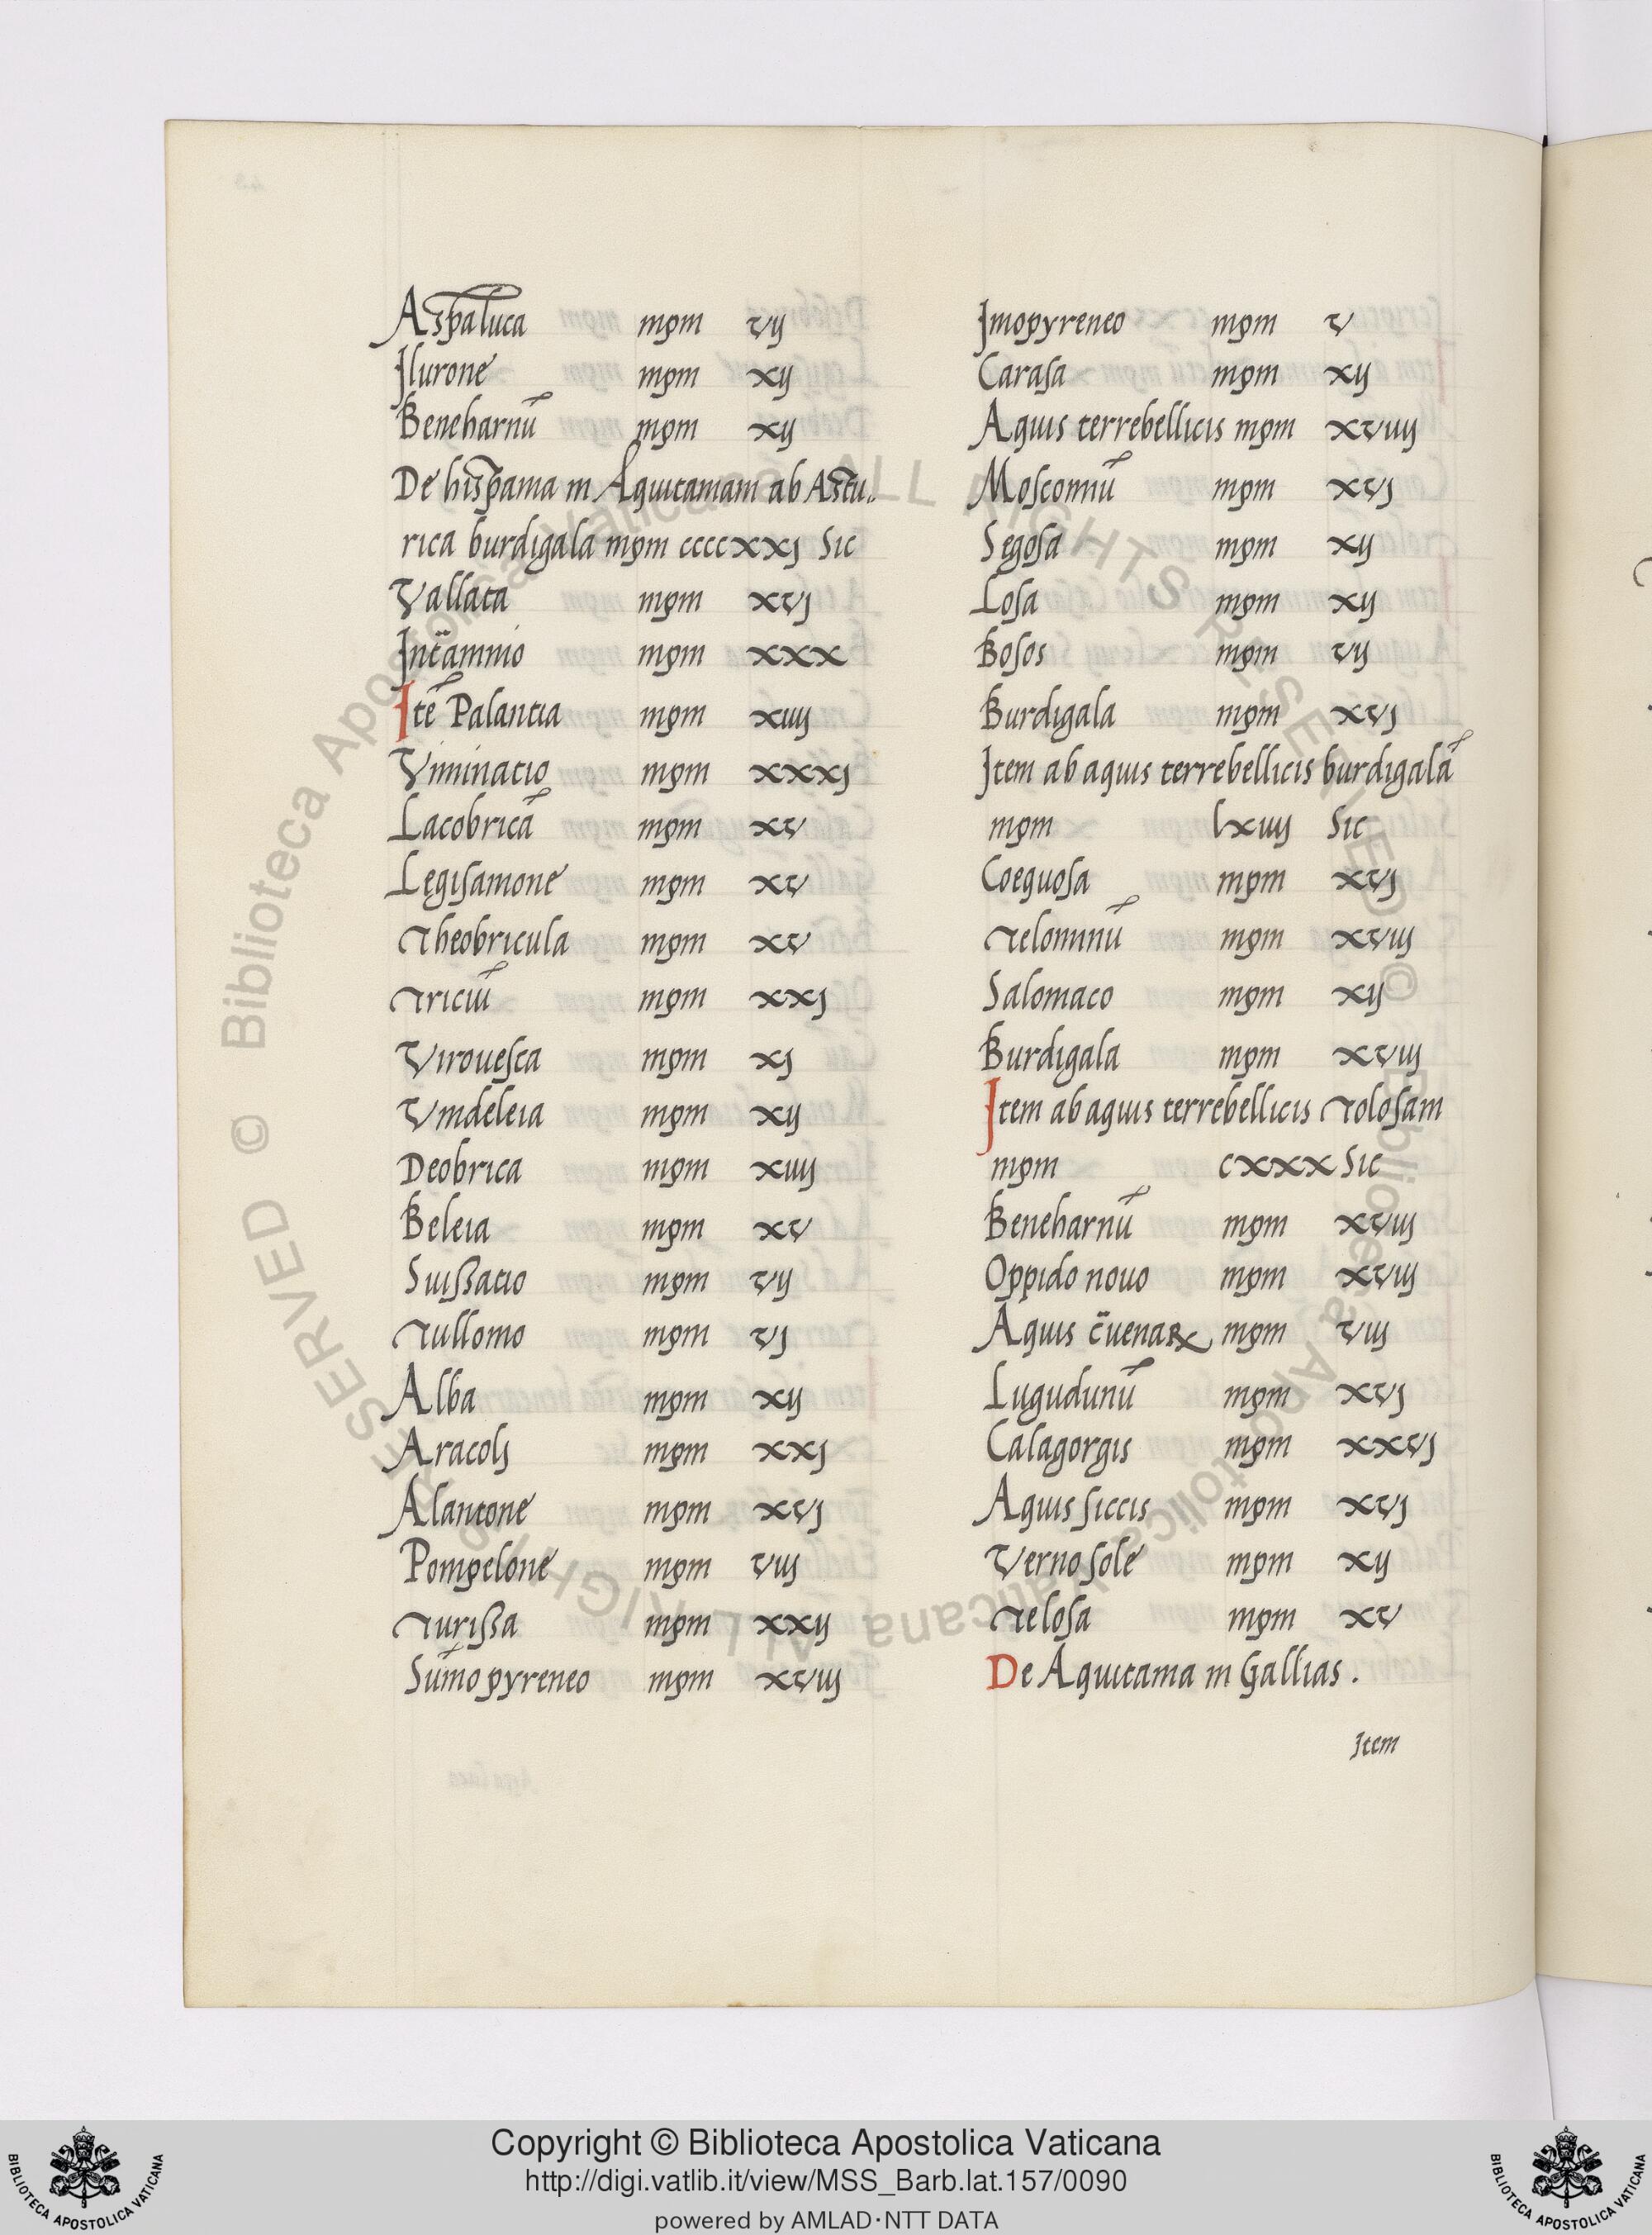 Aspaluca mpm vij
Ilurone mpm xij
Beneharnū mpm xij
De hispania in Aquitaniam ab Astu..
rica burdigala mpm ccccxxj sic
Vallata mpm xvj
Int̄amnio mpm xxx
Itē Palantia mpm xiiij
Viminatio mpm xxxj
Lacobricā mpm xv
Legisamone mpm xv
Theobricula mpm xv
Triciū mpm xxj
Virouesca mpm xj
Vindeleia mpm xij
Deobrica mpm xiiij
Beleia mpm xv
Suissatio mpm vij
Tullonio mpm vj
Alba mpm xij
Aracolj mpm xxj
Alantone mpm xvj
Pompelone mpm viij
Turissa mpm xxij
Sum̄o pyreneo mpm xviij
Imopyreneo mpm v
Carasa mpm xij
Aquis terrebellicis mpm xviiij
Mosconnū mpm xvj
Segosa mpm xij
Losa mpm xij
Bosos mpm vij
Burdigala mpm xvj
Item ab aquis terrebellicis burdigalā
mpm lxiiij sic
Coequosa mpm xvj
Telonnū mpm xviij
Salomaco mpm xij
Burdigala mpm xviij
Item ab aquis terrebellicis Tolosam
mpm cxxx sic
Beneharnū mpm xviij
Oppido nouo mpm xviij
Aquis c̄uenaꝝ mpm viij
Lugudunū mpm xvj
Calagorgis mpm xxvj
Aquis siccis mpm xvj
Vernosole mpm xij
Telosa mpm xv
De Aquitania in Gallias .
Item
© Biblioteca Apostolica Vaticana ALL RIGHTS RESERVED © Biblioteca Apostolica Vaticana ALL RIGHTS RESERVED
Copyright © Biblioteca Apostolica Vaticana
http://digi.vatlib.it/view/MSS_Barb.lat.157/0090
powered by AMLAD·NTT DATA
BIBLIOTECA APOSTOLICA VATICANA
BIBLIOTECA APOSTOLICA VATICANA